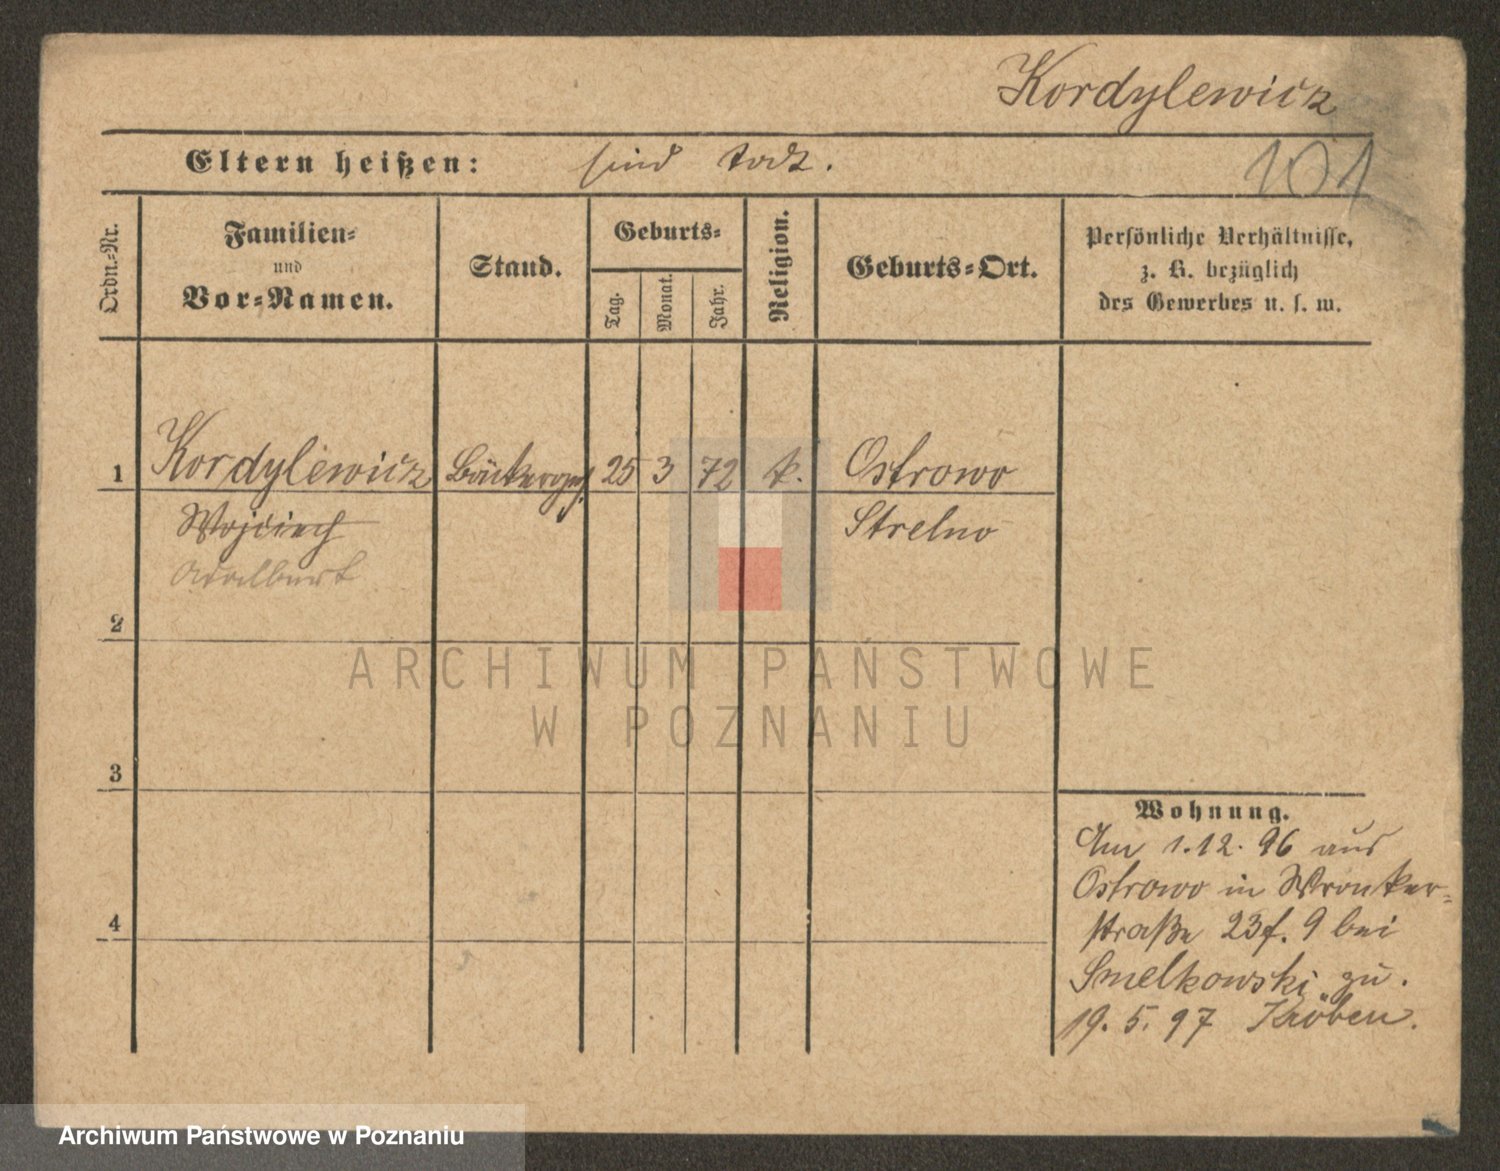 Kordylewicz
Eltern heißen: sind todt.
101
Ordn.-Nr.
Familien-
und
Vor-Namen.
Stand.
Geburts-
Tag.
Monat.
Jahr.
Religion.
Geburts-Ort.
Persönliche Verhältnisse,
z. B. bezüglich
des Gewerbes u. s. w.
1 Kordylewicz Bäckerges. 25 3 72 k. Ostrowo
Wojciech Strelno
Adalbert
2
3
4
Wohnung.
Am 1.12.96 aus
Ostrowo in Wronker-
straße 23f. 9 bei
Smelkowski zu.
19.5.97 Kröben.
ARCHIWUM PAŃSTWOWE
W POZNANIU
Archiwum Państwowe w Poznaniu